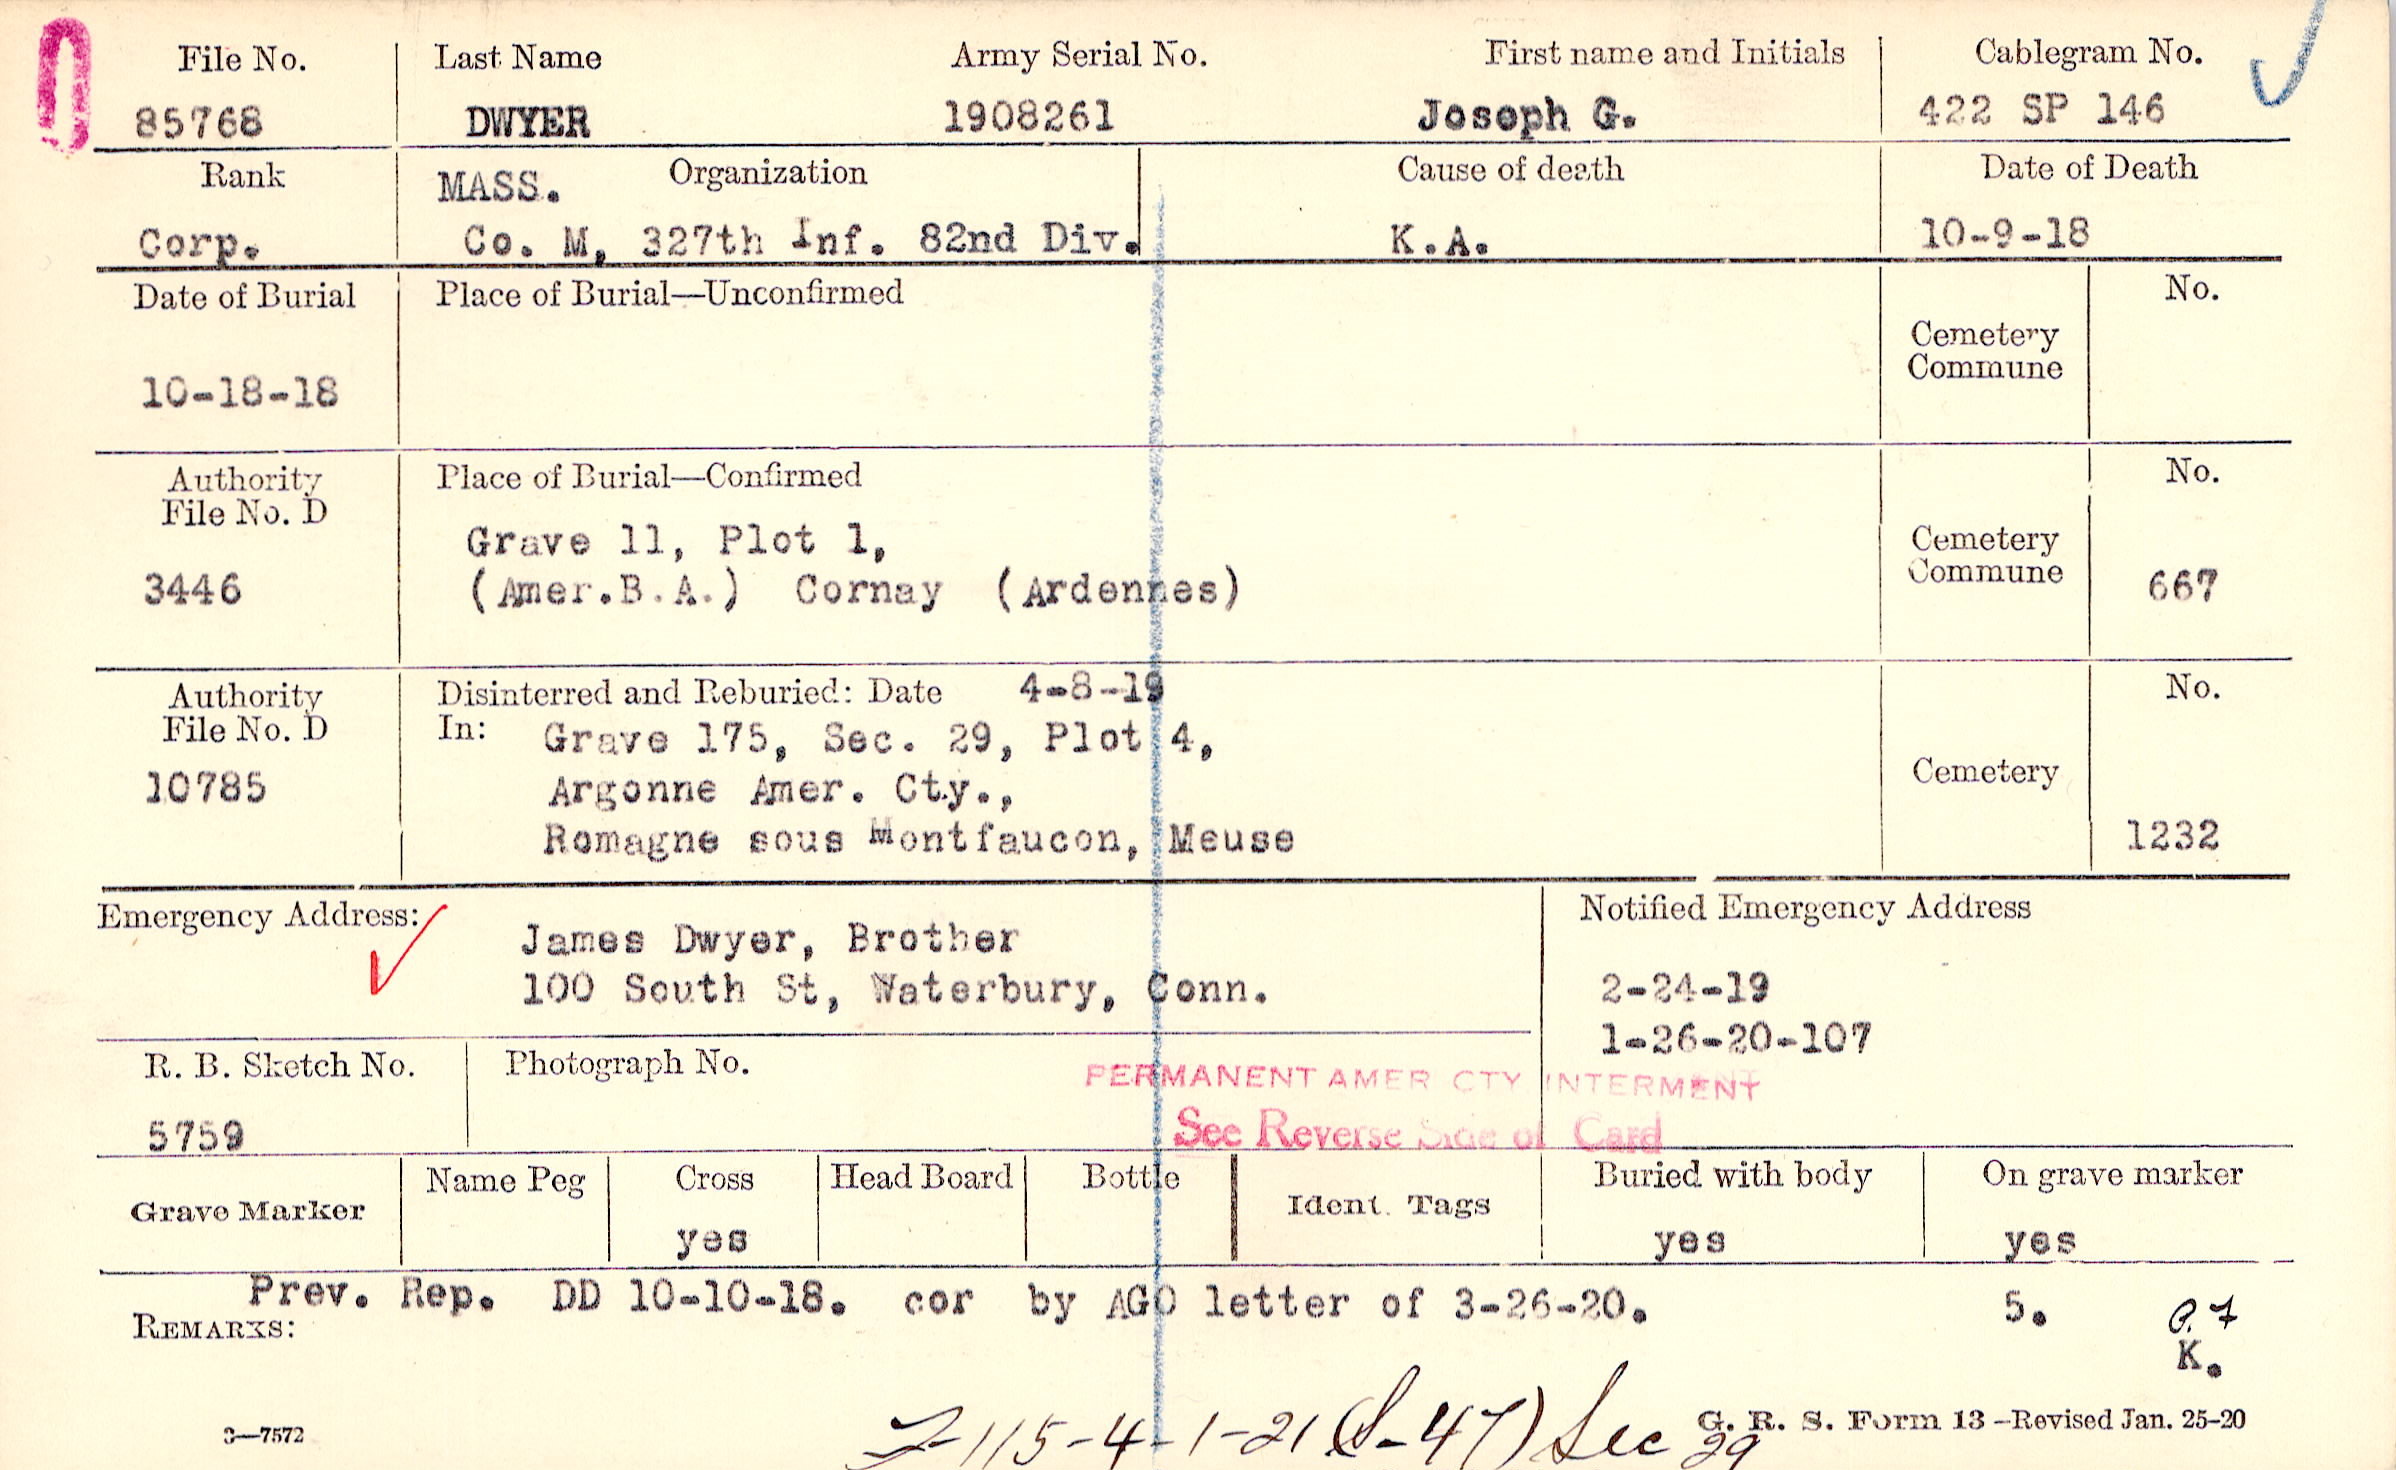 File No. Last Name Army Serial No. First name and Initials Cablegram No.
85768 DWYER 1908261 Joseph G. 422 SP 146
Rank MASS. Organization Cause of death Date of Death
Corp. Co. M, 327th Inf. 82nd Div. K.A. 10-9-18
Date of Burial Place of Burial—Unconfirmed No.
Cemetery
Commune
10-18-18
Authority Place of Burial—Confirmed No.
File No. D
Grave 11, Plot 1, Cemetery
3446 (Amer.B.A.) Cornay (Ardennes) Commune 667
Authority Disinterred and Reburied: Date 4-8-19 No.
File No. D In: Grave 175, Sec. 29, Plot 4,
10785 Argonne Amer. Cty., Cemetery
Romagne sous Montfaucon, Meuse 1232
Emergency Address: Notified Emergency Address
James Dwyer, Brother
100 South St, Waterbury, Conn. 2-24-19
1-26-20-107
R. B. Sketch No. Photograph No.
PERMANENT AMER CTY INTERMENT
5759 See Reverse Side of Card
Grave Marker Name Peg Cross Head Board Bottle Ident. Tags Buried with body On grave marker
yes yes yes
Prev. Rep. DD 10-10-18. cor by AGO letter of 3-26-20. 5.
REMARKS:
K.
3—7572 G. R. S. Form 13—Revised Jan. 25-20
115-4-1-21 (S-47) Sec 29